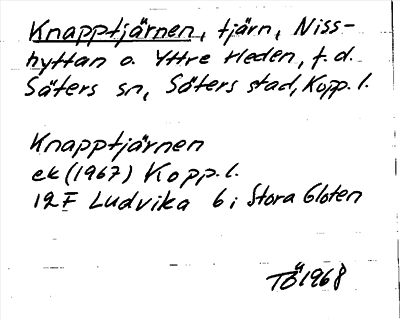 Knapptjärnen, tjärn, Niss-
hyttan o. Yttre Heden, f.d.
Säters sn, Säters stad, Kopp. l.
Knapptjärnen
ek (1967) Kopp. l.
12F Ludvika 6 i Stora Gloten
TÖ 1968